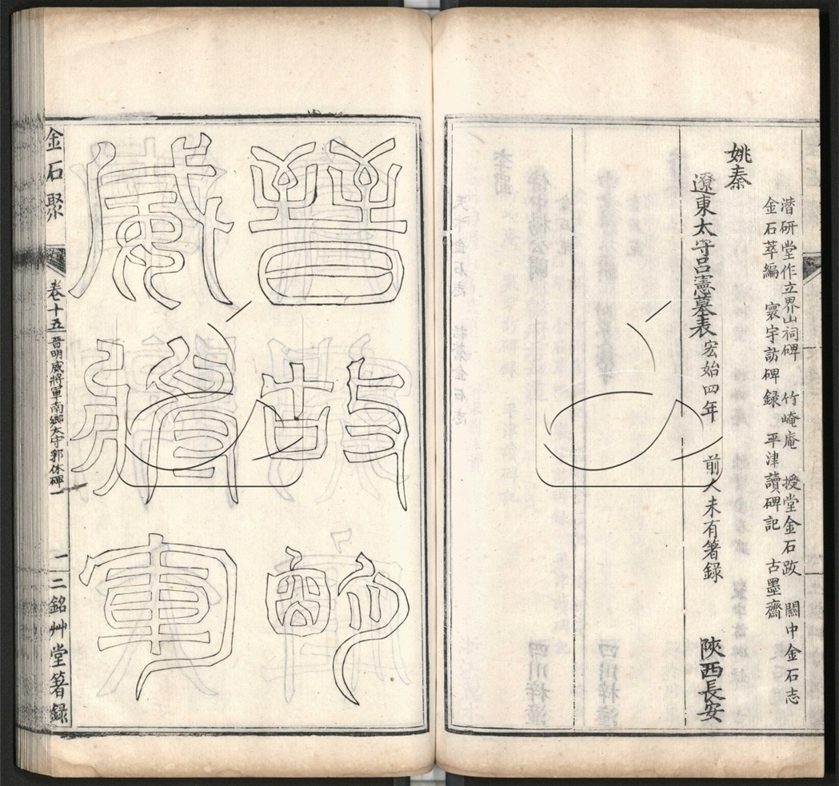 潛研堂作立界山祠碑　竹崦庵　授堂金石跋　關中金石志
金石萃編　寰宇訪碑錄　平津讀碑記　古墨齋
姚秦
遼東太守呂憲墓表　宏始四年　前人未有箸錄　陝西長安
晉故明
威將軍
金石聚　卷十五　晉明威將軍南鄉太守郭休碑一　一　二銘艸堂箸錄